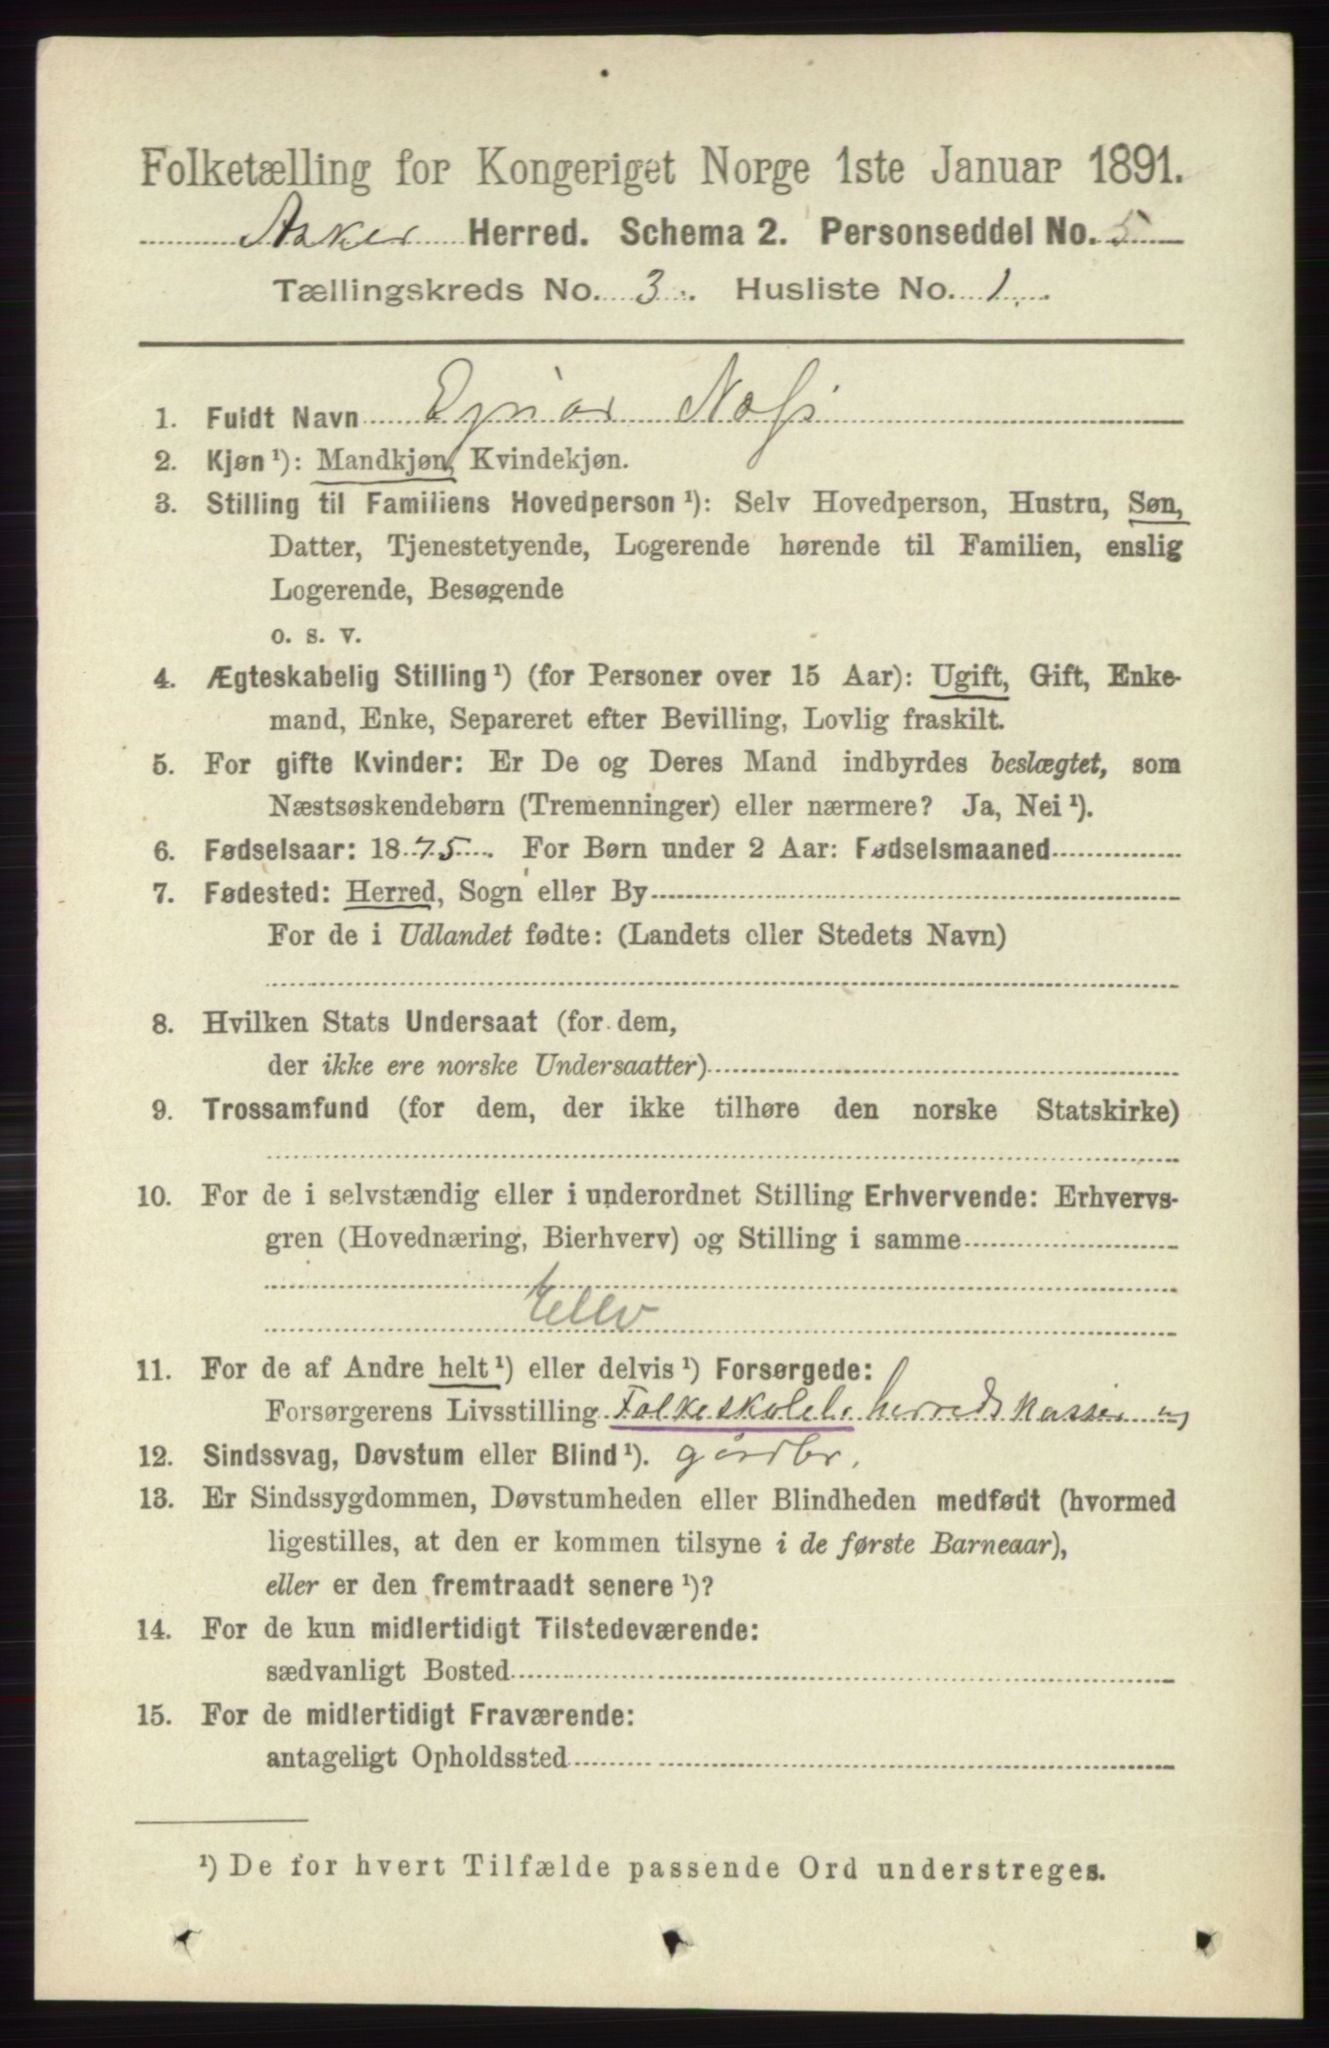 Folketælling for Kongeriget Norge 1ste Januar 1891.
Asker Herred. Schema 2. Personseddel No. 5
Tællingskreds No. 3. Husliste No. 1.
1. Fuldt Navn Ejnar Næss
2. Kjøn ¹): Mandkjøn, Kvindekjøn.
3. Stilling til Familiens Hovedperson ¹): Selv Hovedperson, Hustru, Søn,
Datter, Tjenestetyende, Logerende hørende til Familien, enslig
Logerende, Besøgende
o. s. v.
4. Ægteskabelig Stilling ¹) (for Personer over 15 Aar): Ugift, Gift, Enke-
mand, Enke, Separeret efter Bevilling, Lovlig fraskilt.
5. For gifte Kvinder: Er De og Deres Mand indbyrdes beslægtet, som
Næstsøskendebørn (Tremenninger) eller nærmere? Ja, Nei ¹).
6. Fødselsaar: 1875. For Børn under 2 Aar: Fødselsmaaned
7. Fødested: Herred, Sogn eller By
For de i Udlandet fødte: (Landets eller Stedets Navn)
8. Hvilken Stats Undersaat (for dem,
der ikke ere norske Undersaatter)
9. Trossamfund (for dem, der ikke tilhøre den norske Statskirke)
10. For de i selvstændig eller i underordnet Stilling Erhvervende: Erhvervs-
gren (Hovednæring, Bierhverv) og Stilling i samme
Elev
11. For de af Andre helt ¹) eller delvis ¹) Forsørgede:
Forsørgerens Livsstilling Folkeskolel. herredskasser og
12. Sindssvag, Døvstum eller Blind ¹). gårdbr.
13. Er Sindssygdommen, Døvstumheden eller Blindheden medfødt (hvormed
ligestilles, at den er kommen tilsyne i de første Barneaar),
eller er den fremtraadt senere ¹)?
14. For de kun midlertidigt Tilstedeværende:
sædvanligt Bosted
15. For de midlertidigt Fraværende:
antageligt Opholdssted
¹) De for hvert Tilfælde passende Ord understreges.